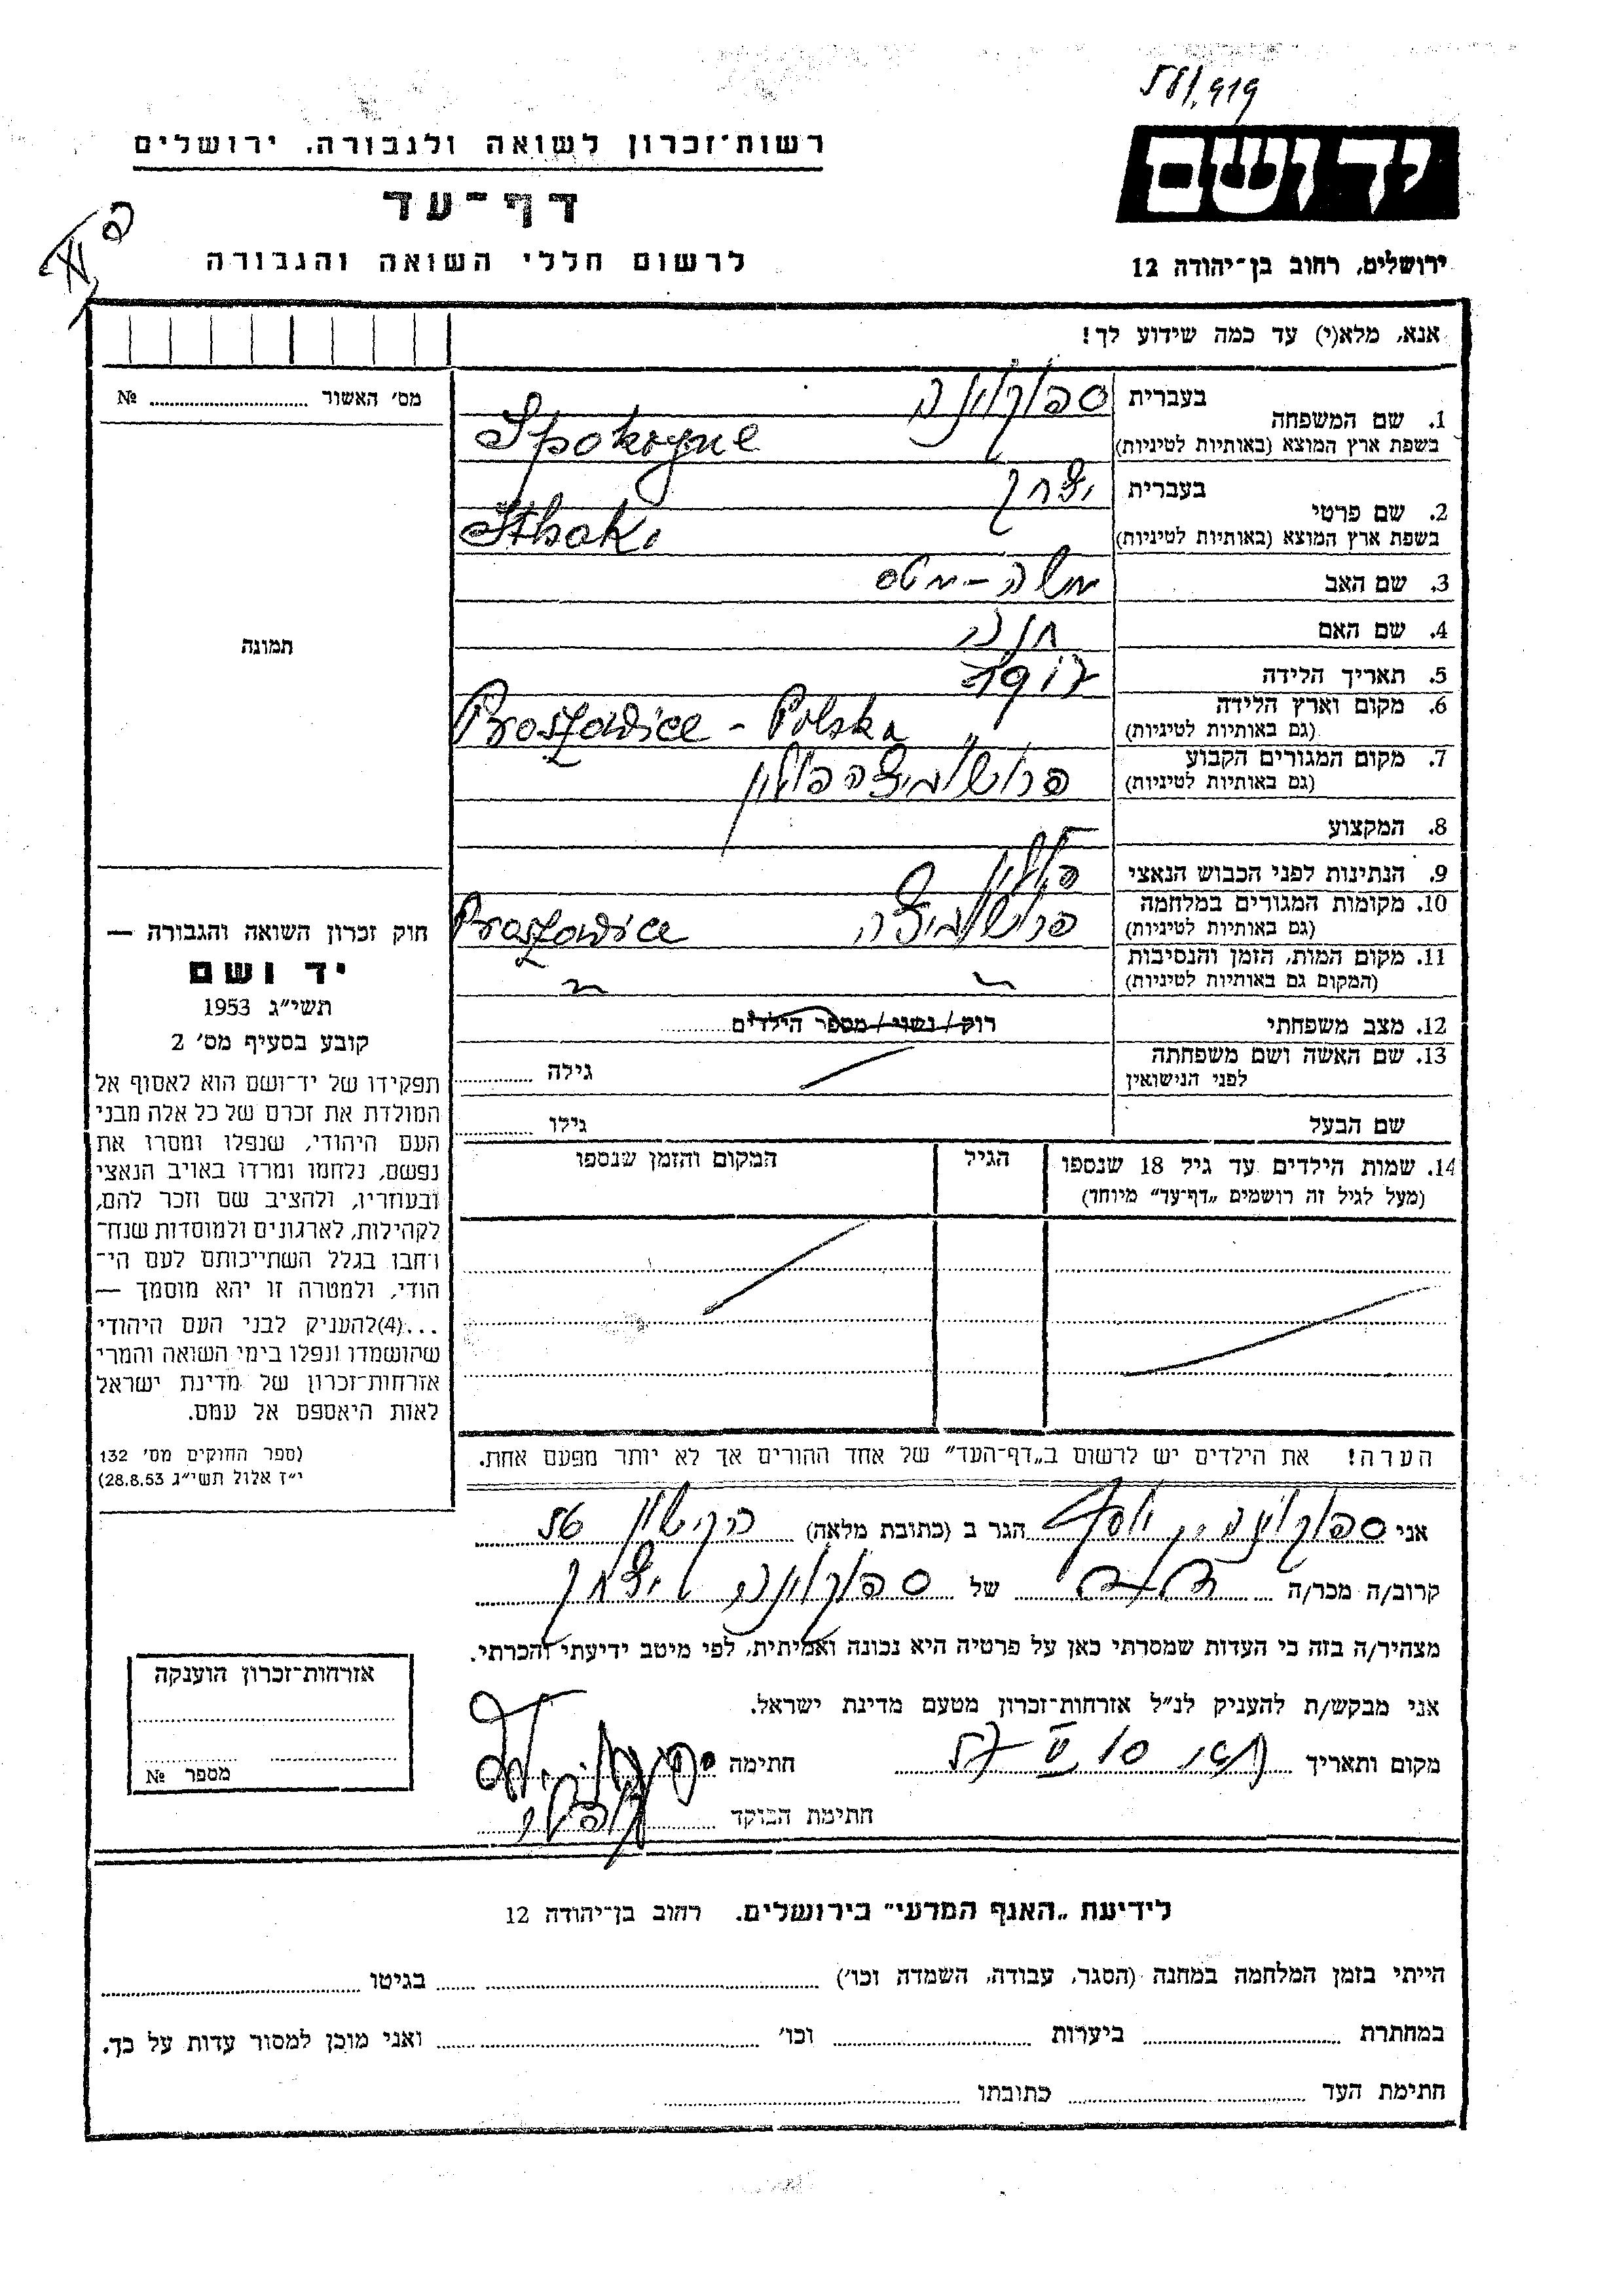 58/919
רשות־זכרון לשואה ולגבורה, ירושלים
יד ושם
דף־עד
לרשום חללי השואה והגבורה
ירושלים, רחוב בן־יהודה 12
אנא, מלא(י) עד כמה שידוע לך!
מס' האשור № 
1. שם המשפחה בעברית ספוקוינה
בשפת ארץ המוצא (באותיות לטיניות) Spokoyne
2. שם פרטי בעברית יצחק
בשפת ארץ המוצא (באותיות לטיניות) Ithak
3. שם האב משה - מטס
4. שם האם חנה
5. תאריך הלידה
6. מקום וארץ הלידה (גם באותיות לטיניות) Proszowice - Polska
7. מקום המגורים הקבוע (גם באותיות לטיניות) פרושוביצה פולין
8. המקצוע
9. הנתינות לפני הכבוש הנאצי פולין
10. מקומות המגורים במלחמה (גם באותיות לטיניות) פרושוביצה Proszowice
11. מקום המות, הזמן והנסיבות (המקום גם באותיות לטיניות)
12. מצב משפחתי רוק / נשוי / מספר הילדים
13. שם האשה ושם משפחתה לפני הנישואין גילה
שם הבעל גילו
14. שמות הילדים עד גיל 18 שנספו (מעל לגיל זה רושמים „דף־עד" מיוחד) הגיל המקום והזמן שנספו
הערה! את הילדים יש לרשום ב„דף־העד" של אחד ההורים אך לא יותר מפעם אחת.
תמונה
חוק זכרון השואה והגבורה —
יד ושם
תשי"ג 1953
קובע בסעיף מס' 2
תפקידו של יד־ושם הוא לאסוף אל
המולדת את זכרם של כל אלה מבני
העם היהודי, שנפלו ומסרו את
נפשם, נלחמו ומרדו באויב הנאצי
ובעוזריו, ולהציב שם וזכר להם,
לקהילות, לארגונים ולמוסדות שנח־
רבו בגלל השתייכותם לעם הי־
הודי, ולמטרה זו יהא מוסמך —
...(4)להעניק לבני העם היהודי
שהושמדו ונפלו בימי השואה והמרי
אזרחות־זכרון של מדינת ישראל
לאות היאספם אל עמם.
(ספר החוקים מס' 132
י"ז אלול תשי"ג 28.8.53)
אני ספוקוינה יוסף הגר ב (כתובת מלאה)
קרוב/ה מכר/ה של ספוקוינה יצחק
מצהיר/ה בזה כי העדות שמסרתי כאן על פרטיה היא נכונה ואמיתית, לפי מיטב ידיעתי והכרתי.
אני מבקש/ת להעניק לנ"ל אזרחות־זכרון מטעם מדינת ישראל.
מקום ותאריך חתימה
חתימת הפוקד
אזרחות־זכרון הוענקה
מספר №
לידיעת „האגף המדעי" בירושלים, רחוב בן־יהודה 12
הייתי בזמן המלחמה במחנה (הסגר, עבודה, השמדה וכו') בגיטו
במחתרת ביערות וכו' ואני מוכן למסור עדות על כך.
חתימת העד כתובתו